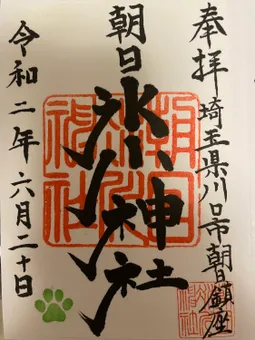 奉拝
埼玉県川口市朝日鎮座
朝日
氷川神社
令和二年六月二十日